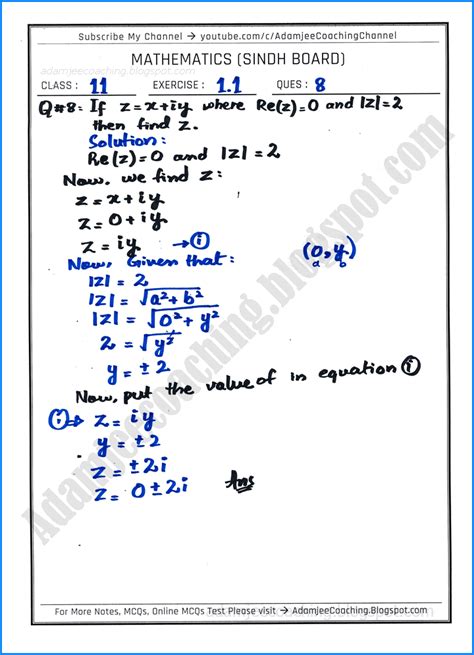 Subscribe My Channel → youtube.com/c/AdamjeeCoachingChannel
adamjeecoaching.blogspot.com
MATHEMATICS (SINDH BOARD)
CLASS : 11 EXERCISE : 1.1 QUES : 8
Q#8: If z=x+iy where Re(z)=0 and |z|=2
then find z.
Solution:
Re(z)=0 and |z|=2
Now, we find z:
z = x+iy
z = 0+iy
z = iy →ⓘ
(0,y)
a b
Now, Given that:
|z| = 2
|z| = √a²+b²
|z| = √0²+y²
2 = √y²
y = ±2
Now, put the value of in equation ⓘ
ⓘ⇒ z = iy
y = ±2
z = ±2i
z = 0±2i Ans
Adamjeecoaching.blogspot.com
adamjeecoaching.blogspot.com
For More Notes, MCQs, Online MCQs Test Please visit → AdamjeeCoaching.Blogspot.com